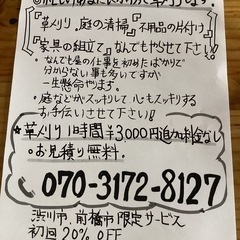 草刈り.庭の清掃 不用品の片付け
家具の組立て なんでもやらせて下さい!!
なんでも屋の仕事を初めたばかりで
分からない事も多いですが
一生懸命やります。
庭などがスッキリして 心もスッキリする
お手伝いさせて下さい!!
*草刈り 1時間 ¥3,000円追加料金なし
○お見積り無料.
070-3172-8127
渋川市.前橋市限定サービス
初回20% OFF